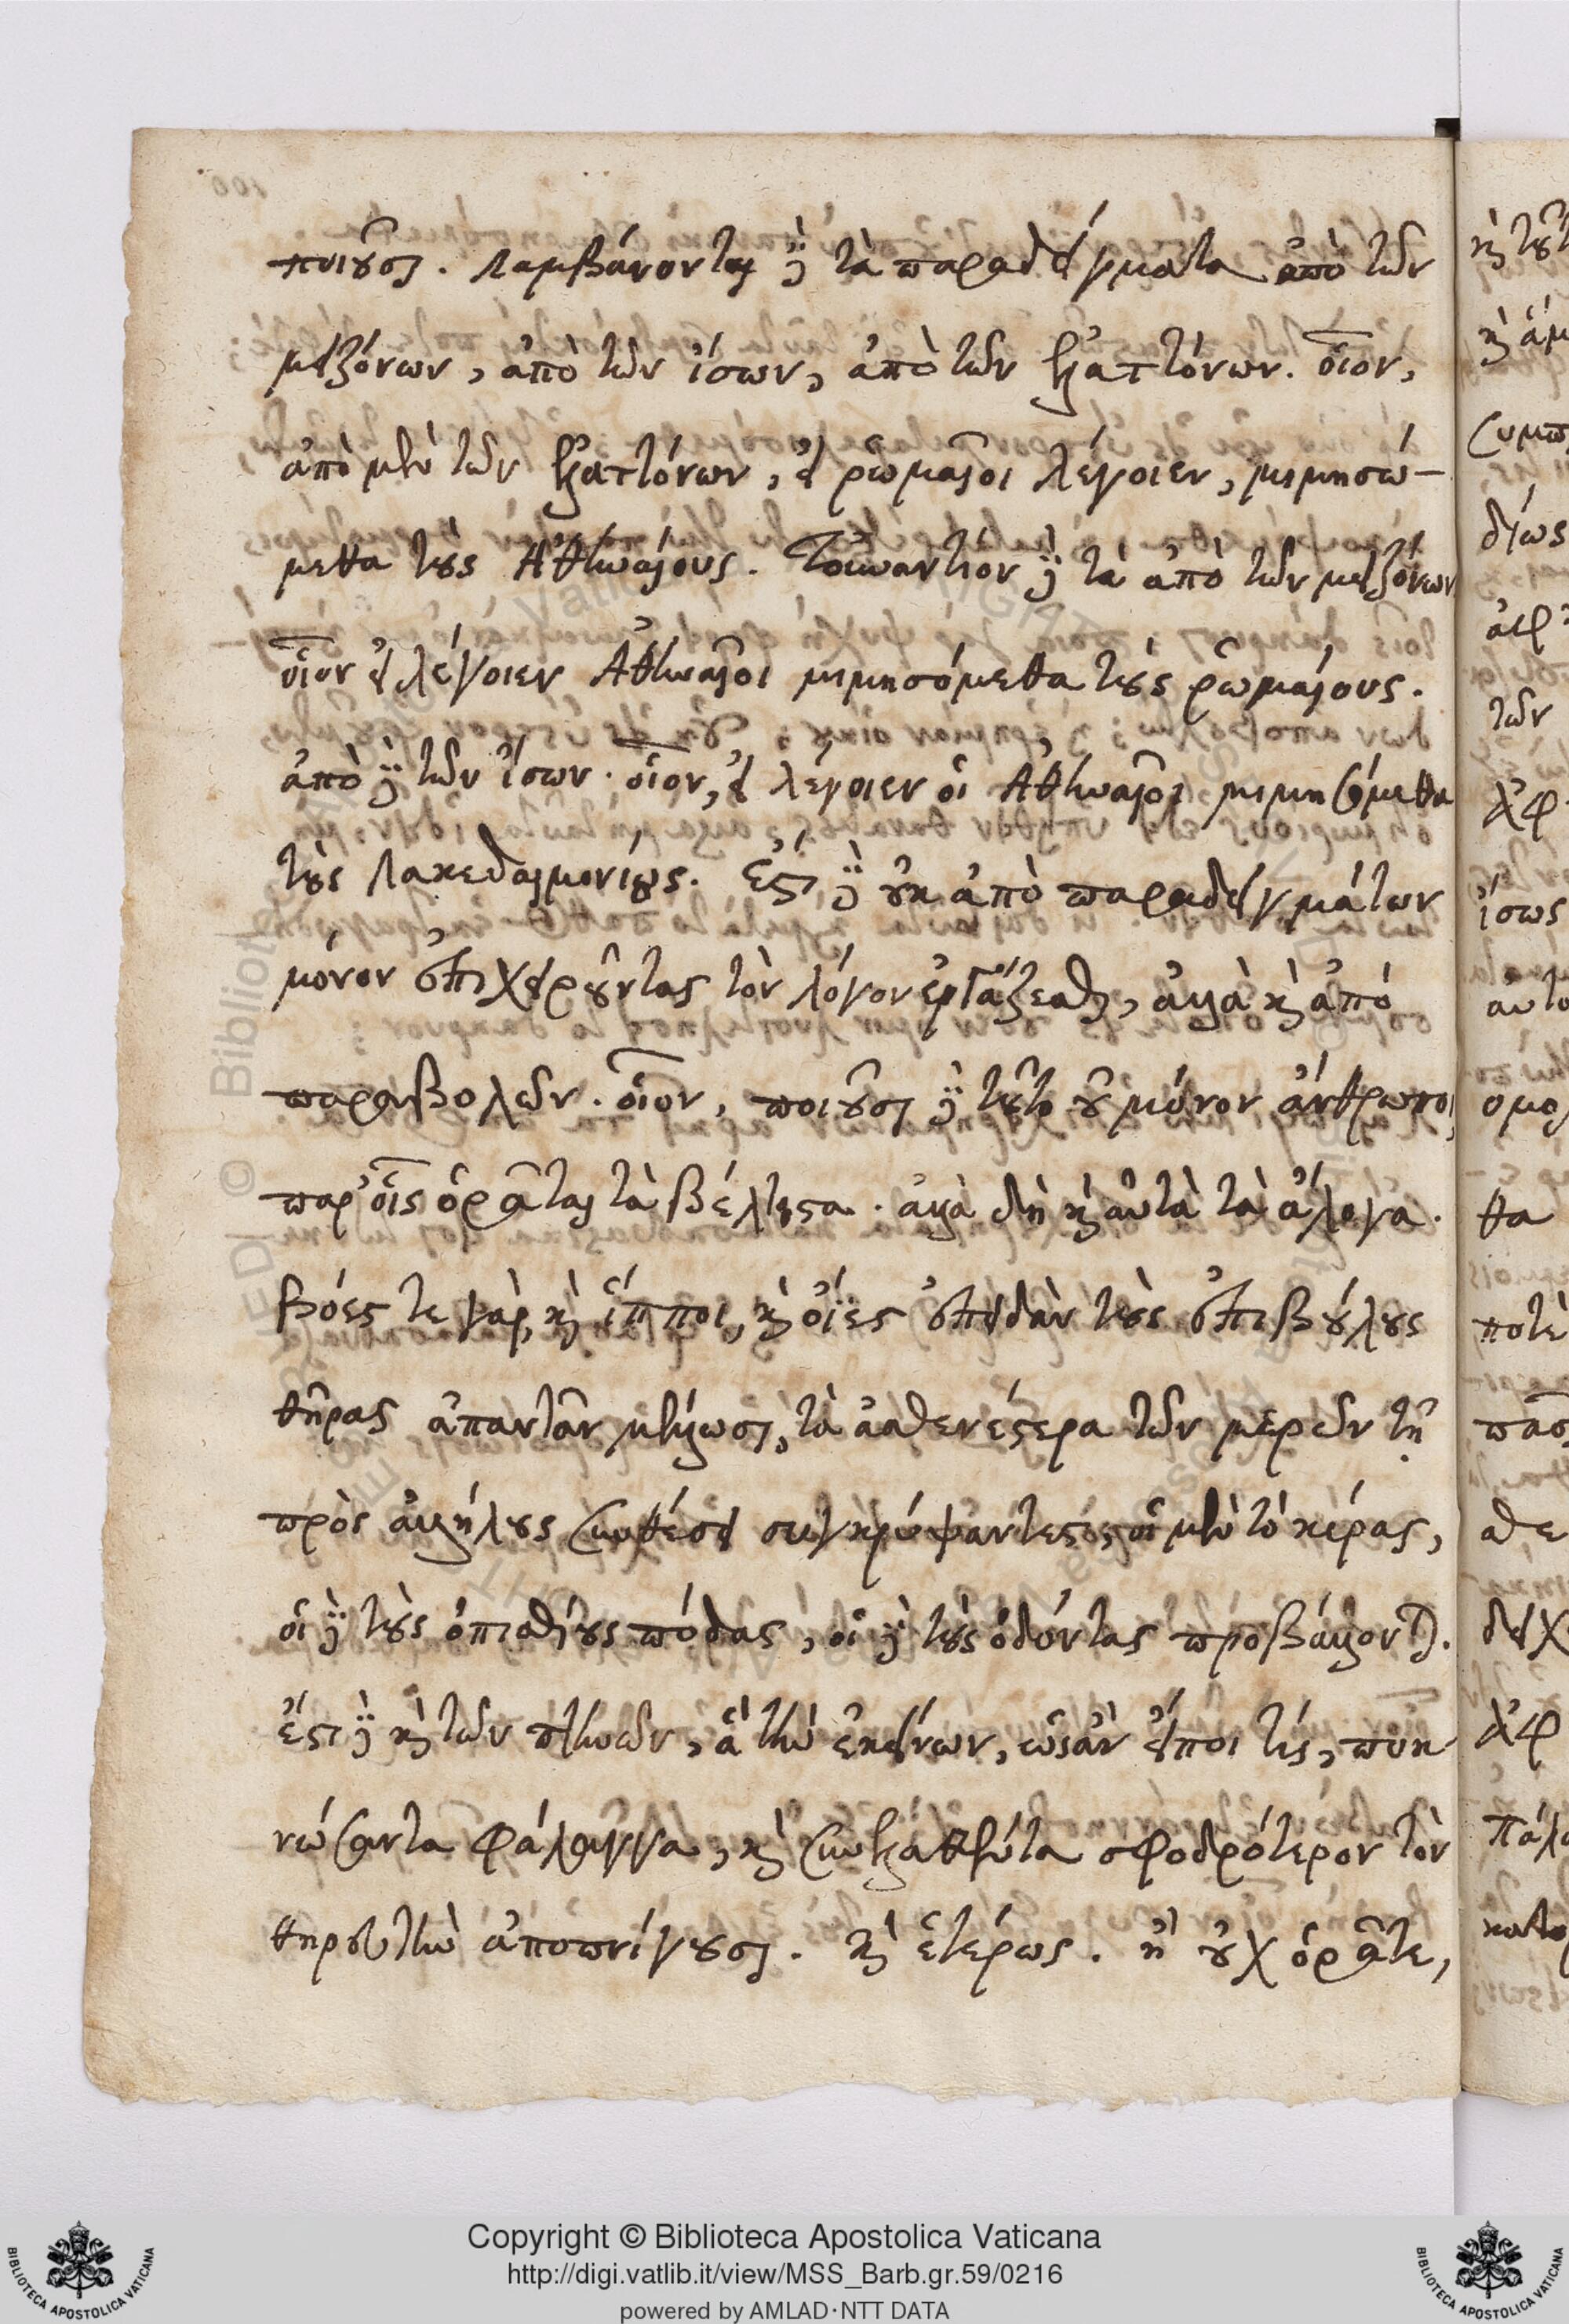 ποιοῦσι. λαμβάνονται δὲ τὰ παραδείγματα ἀπὸ τῶν
μειζόνων, ἀπὸ τῶν ἴσων, ἀπὸ τῶν ἐλαττόνων. οἷον,
ἀπὸ μὲν τῶν ἐλαττόνων, εἰ ῥωμαῖοι λέγοιεν, μιμησώ-
μεθα τοὺς Ἀθηναίους. Τοὐναντίον δὲ τὰ ἀπὸ τῶν μειζόνων
οἷον εἰ λέγοιεν Ἀθηναῖοι μιμησόμεθα τοὺς ῥωμαίους.
ἀπὸ δὲ τῶν ἴσων. οἷον, εἰ λέγοιεν οἱ Ἀθηναῖοι μιμησόμεθα
τοὺς Λακεδαιμονίους. Ἔστι δὲ οὐκ ἀπὸ παραδειγμάτων
μόνον ἐπιχειροῦντας τὸν λόγον ἐργάζεσθαι, ἀλλὰ καὶ ἀπὸ
παραβολῶν. οἷον, ποιοῦσι δὲ τοῦτο οὐ μόνον ἄνθρωποι,
παρ' οἷς ὁρᾶται τὰ βέλτιστα. ἀλλὰ δὴ καὶ αὐτὰ τὰ ἄλογα.
βόες τε γὰρ, καὶ ἵπποι, καὶ ὄϊες ἐπειδὰν τοὺς ἐπιβούλους
θῆρας ἀπαντᾶν μέλλωσι, τὰ ἀσθενέστερα τῶν μερῶν τῇ
πρὸς ἀλλήλους συνθέσει συγκρύψαντες οἱ μὲν τὸ κέρας,
οἱ δὲ τοὺς ὀπισθίους πόδας, οἱ δὲ τοὺς ὀδόντας προβάλλονται.
ἔστι δὲ καὶ τῶν πτηνῶν, ἃ τὴν ἐκείνων, ὡς ἂν εἴποι τίς, πυκ
νώσαντα φάλαγγα, καὶ συνελαθέντα σφοδρότερον τὸν
θηρευτὴν ἀποπνίγουσι. καὶ ἑτέρως. ἢ οὐχ ὁρᾶτε,
Copyright © Biblioteca Apostolica Vaticana
http://digi.vatlib.it/view/MSS_Barb.gr.59/0216
powered by AMLAD·NTT DATA
BIBLIOTECA APOSTOLICA VATICANA
BIBLIOTECA APOSTOLICA VATICANA